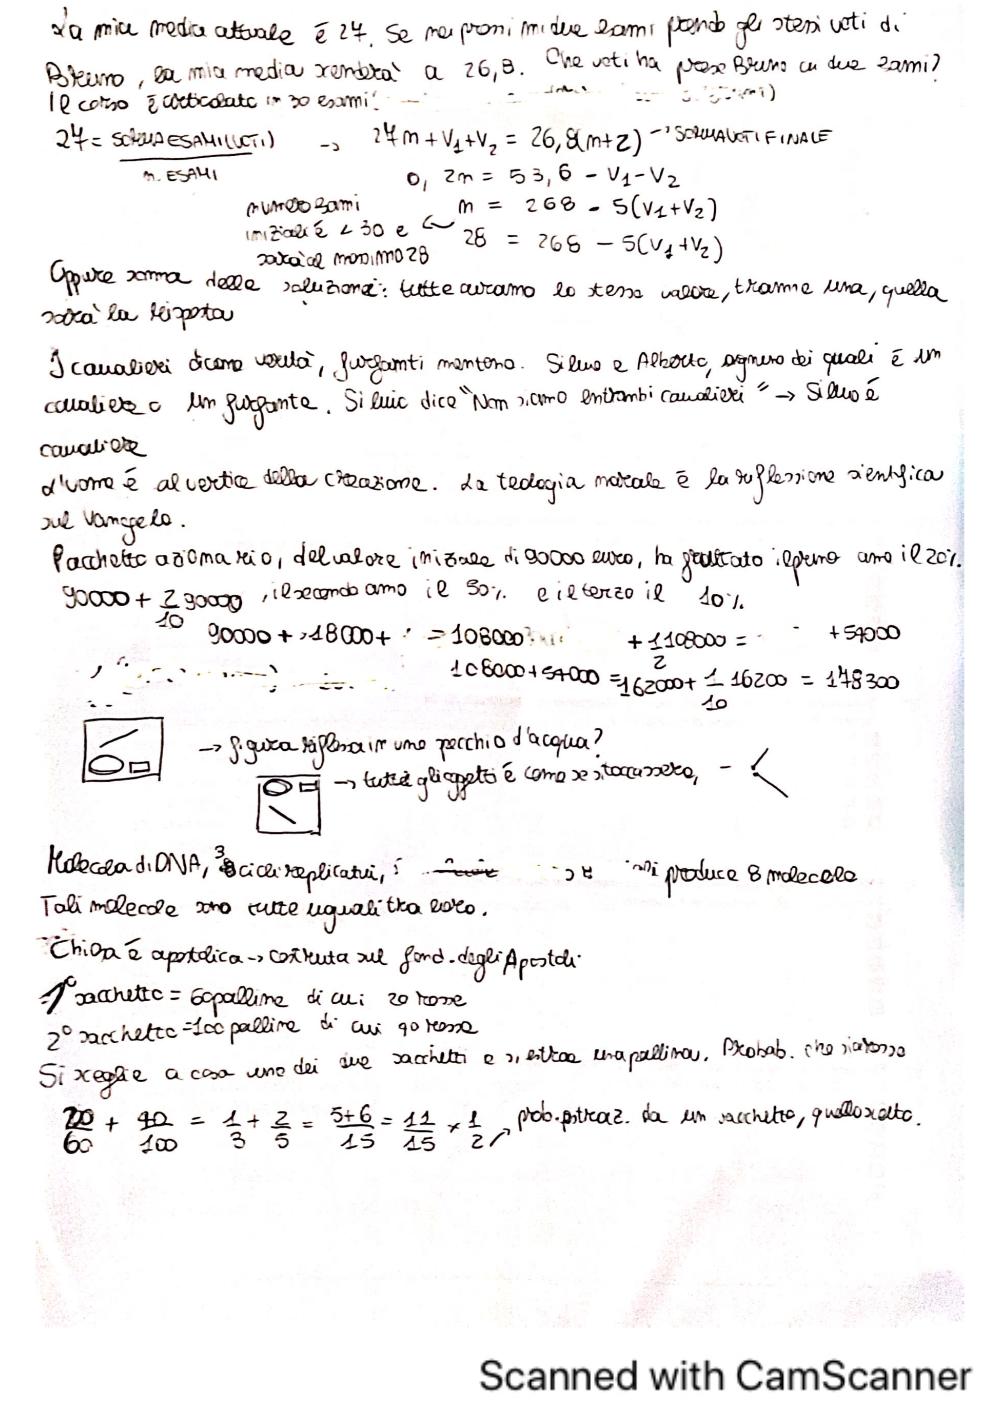 La mia media attuale è 27. Se nei prossimi due esami prendo gli stessi voti di
Bruno, la mia media scenderà a 26,8. Che voti ha preso Bruno in due esami?
Il corso è articolato in 30 esami.
27 = SOMMA ESAMI (VOTI) → 27m + V1+V2 = 26,8(m+2) → SOMMA VOTI FINALE
n. ESAMI
0,2m = 53,6 - V1-V2
numero esami m = 268 - 5(V1+V2)
iniziali è < 30 e ← 28 = 268 - 5(V1+V2)
sarà al massimo 28
Oppure somma delle soluzioni: tutte avranno lo stesso valore, tranne una, quella
sarà la risposta
I cavalieri dicono verità, furfanti mentono. Silvio e Alberto, ognuno dei quali è un
cavaliere o un furfante. Silvio dice "Non siamo entrambi cavalieri" → Silvio è
cavaliere
L'uomo è al vertice della creazione. La teologia morale è la riflessione scientifica
sul Vangelo.
Pacchetto azionario, del valore iniziale di 90000 euro, ha fruttato il primo anno il 20%.
90000 + 2/10 90000, il secondo anno il 50% e il terzo il 10%
90000 + 18000 + = 108000 + 1/2 108000 = + 54000
108000+54000 = 162000 + 1/10 16200 = 178300
→ figura riflessa in uno specchio d'acqua?
→ tutti gli oggetti è come se si toccassero, -
Molecola di DNA, 3 cicli replicativi, si produce 8 molecole
Tali molecole sono tutte uguali tra loro.
Chiesa è apostolica → costruita sul fond. degli Apostoli
1° sacchetto = 60 palline di cui 20 rosse
2° sacchetto = 100 palline di cui 40 rosse
Si sceglie a caso uno dei due sacchetti e si estrae una pallina. Probab. che sia rossa
20/60 + 40/100 = 1/3 + 2/5 = 5+6/15 = 11/15 × 1/2 → prob. estraz. da un sacchetto, quello scelto.
Scanned with CamScanner